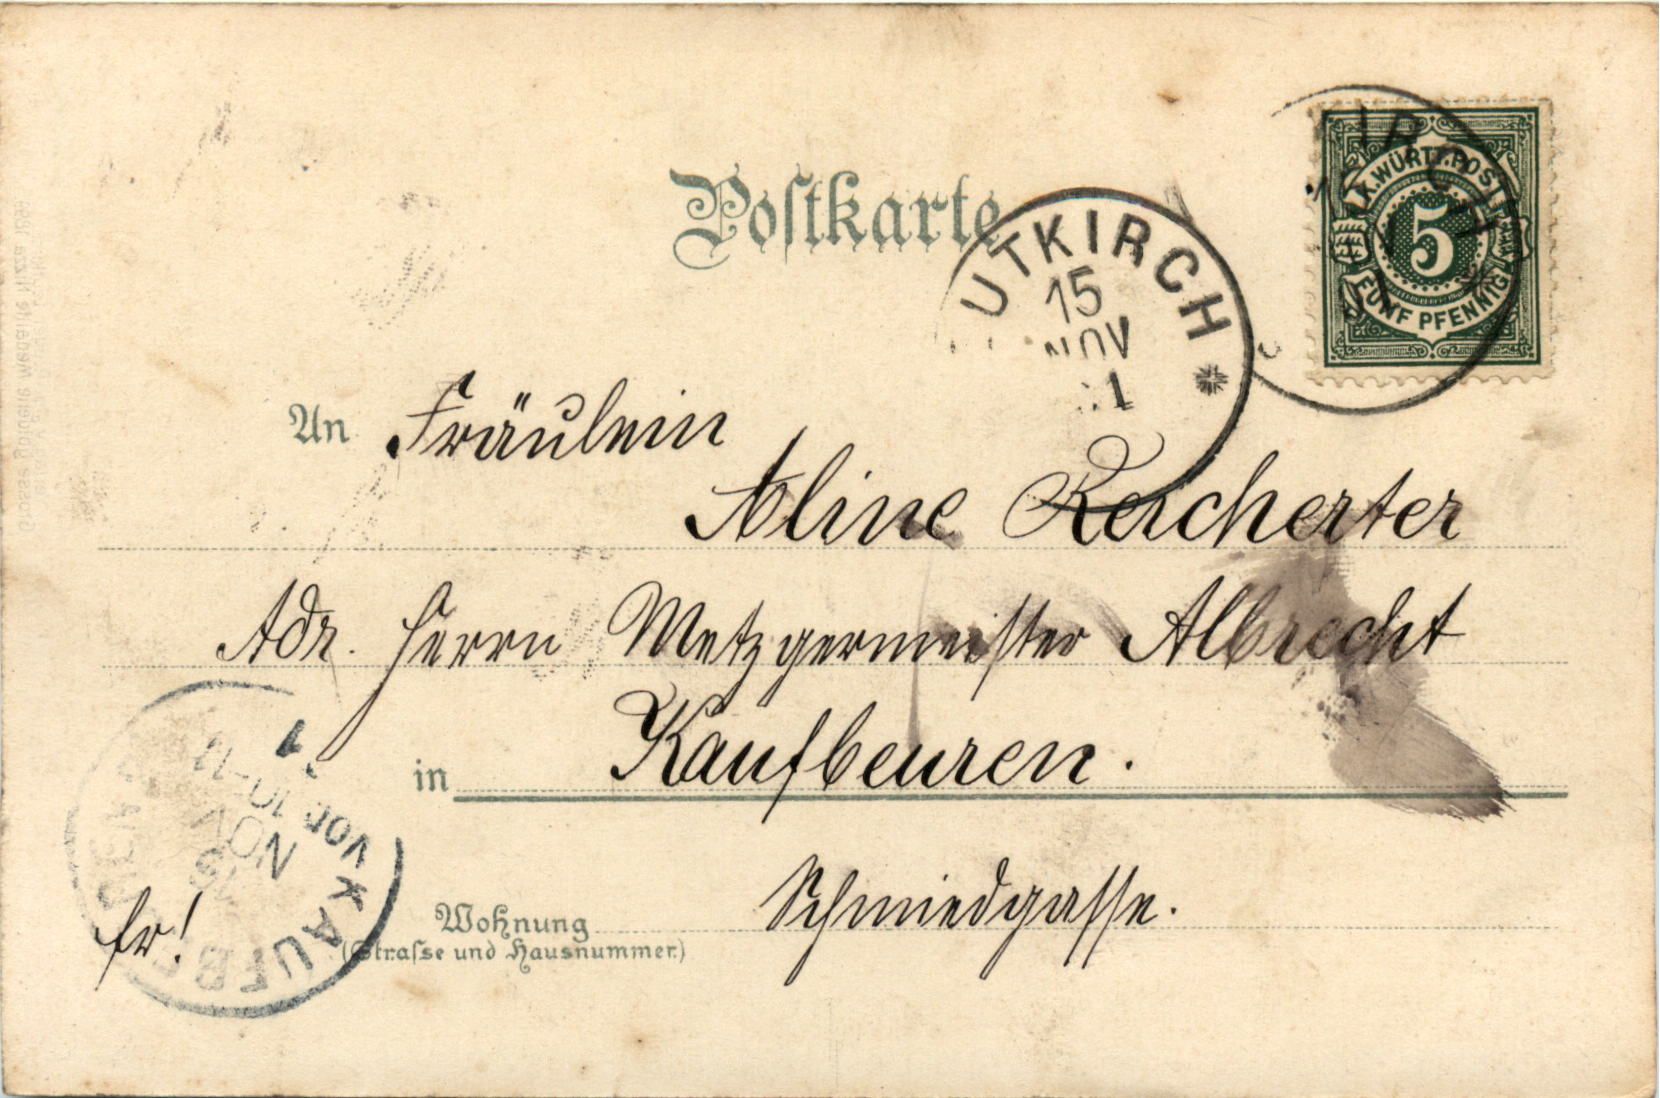 Postkarte
K. WÜRTT. POST
5
FÜNF PFENNIG
UTKIRCH
15
NOV
1
An Fräulein
Aline Reicherter
Adr. Herrn Metzgermeister Albrecht
in Kaufbeuren.
Wohnung Schmiedgasse.
(Straſse und Hausnummer.)
fr!
KAUFB
NOV
VOR 10-11
1
Grosse goldene Medaille Nizza